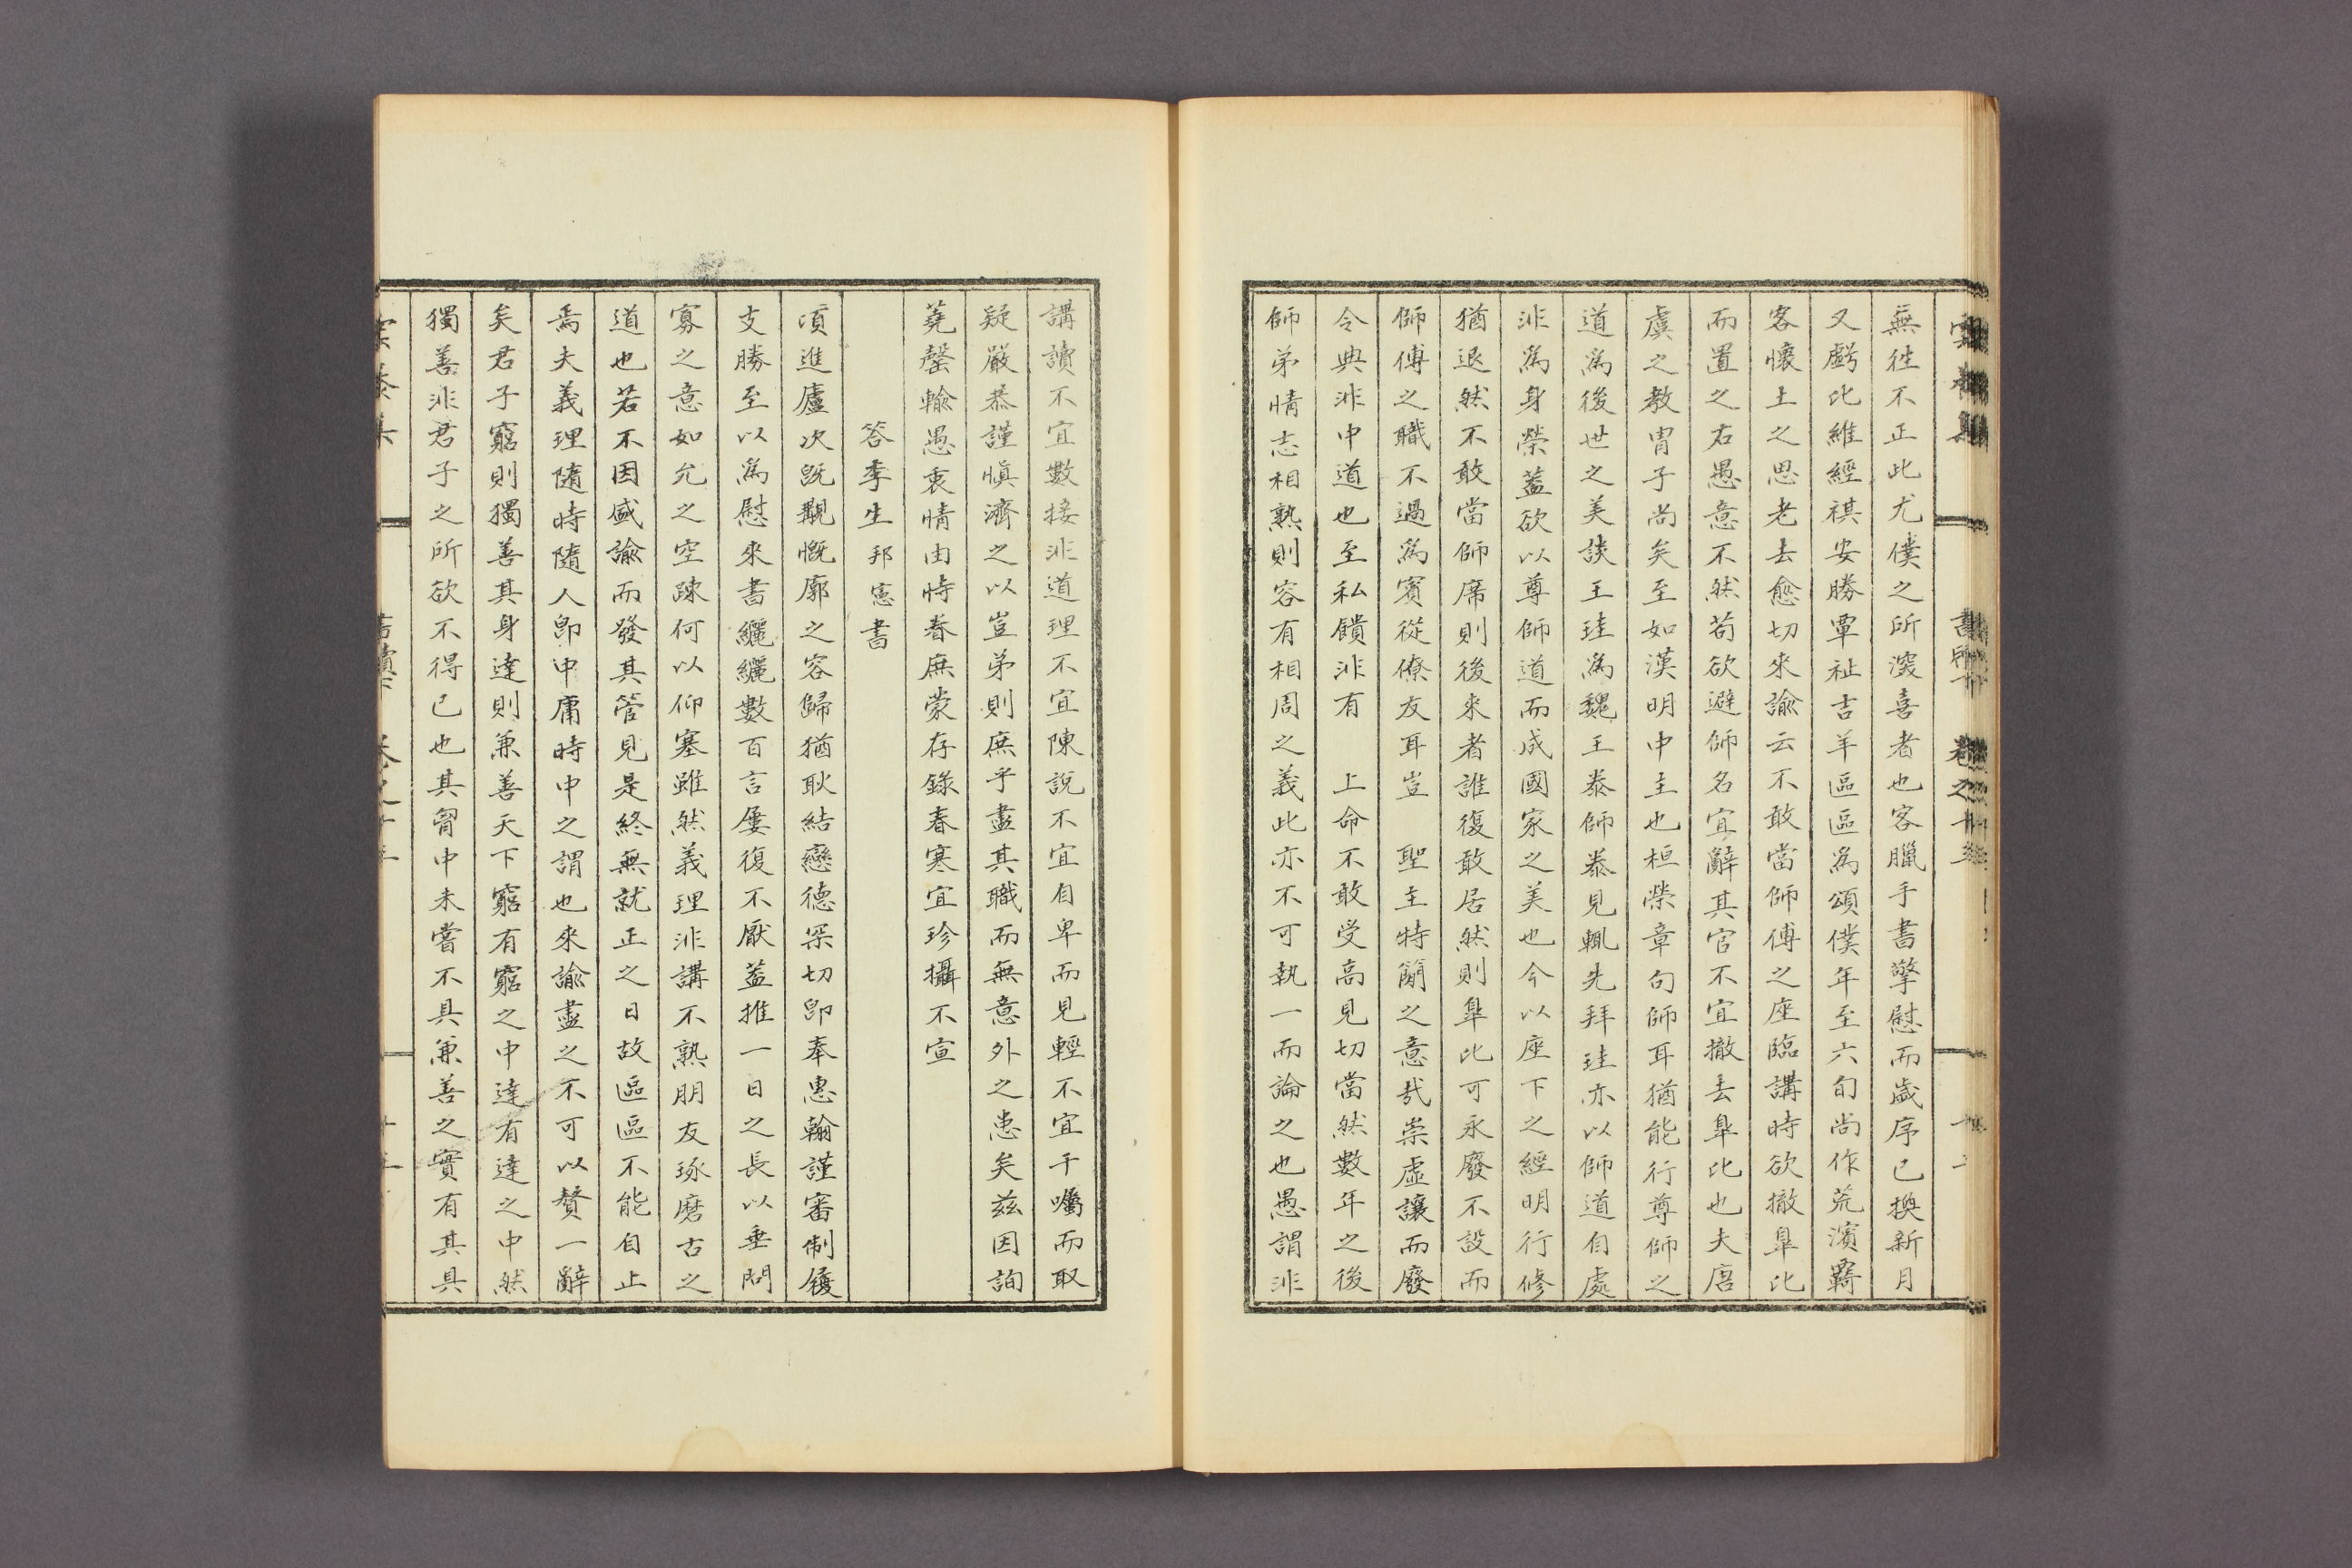 無徃不正此尤僕之所深喜者也客臘手書擎慰而歲序已換新月
又虧比維經祺安勝覃祉吉羊區區為頌僕年至六旬尚作荒濱羇
客懷土之思老去愈切來諭云不敢當師傅之座臨講時欲撤臯比
而置之右愚意不然苟欲避師名宜辭其官不宜撤去臯比也夫唐
虞之教冑子尚矣至如漢明中主也桓榮章句師耳猶能行尊師之
道爲後世之美談王珪爲魏王泰師泰見輒先拜珪亦以師道自處
非爲身榮蓋欲以尊師道而成國家之美也今以座下之經明行修
猶退然不敢當師席則後來者誰復敢居然則臯比可永廢不設而
師傅之職不過爲賓從僚友耳豈 聖主特簡之意哉崇虛讓而廢
令典非中道也至私饋非有 上命不敢受高見切當然數年之後
師弟情志相熟則容有相周之義此亦不可執一而論之也愚謂非
講讀不宜數接非道理不宜陳說不宜自卑而見輕不宜干囑而取
疑嚴恭謹愼濟之以豈弟則庶乎盡其職而無意外之患矣茲因詢
蕘罄輸愚衷情由時眷庶蒙存錄春寒宜珍攝不宣
答李生邦憲書
頃進廬次旣覩慨廓之容歸猶耿結戀德罙切卽奉惠翰謹審制履
支勝至以爲慰來書纚纚數百言屢復不厭蓋推一日之長以垂問
寡之意如允之空踈何以仰塞雖然義理非講不熟朋友琢磨古之
道也若不因盛諭而發其管見是終無就正之日故區區不能自止
焉夫義理隨時隨人卽中庸時中之謂也來諭盡之不可以贅一辭
矣君子窮則獨善其身達則兼善天下窮有窮之中達有達之中然
獨善非君子之所欲不得已也其胷中未嘗不具兼善之實有其具